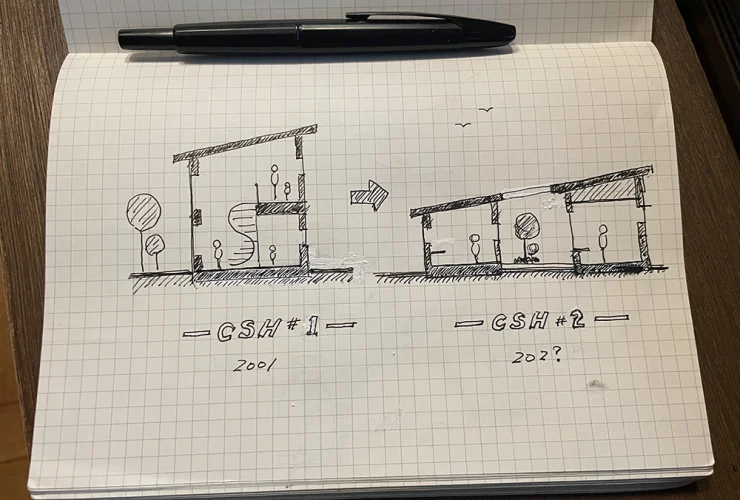 CSH #1
2001
CSH #2
202?